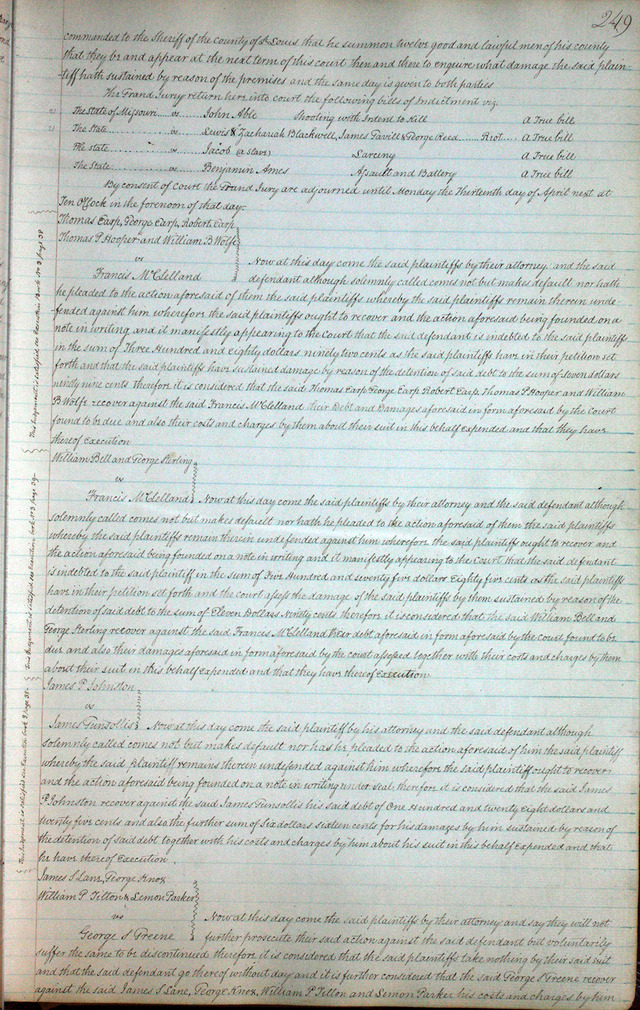 249
commanded to the Sheriff of the County of St Louis that he summon twelve good and lawful men of his county
that they be and appear at the next term of this court then and there to enquire what damage the said plain-
-tiff hath sustained by reason of the premises and the same day is given to both parties
The Grand Jury return here into court the following bills of Indictment viz
The State of Missouri vs John Able Shooting with Intent to Kill A True bill
The State vs Lewis & Zachariah Blackwell, James Favill & George Reed Riot A True bill
The State vs Jacob (a slave) Larceny A True bill
The State vs Benjamin Ames Assault and Battery A True bill
By consent of Court the Grand Jury are adjourned until Monday the Thirteenth day of April next at
Ten O'Clock in the forenoon of that day.
Thomas Earp, George Earp, Robert Earp
Thomas P Hooper and William B Wolfe
vs
Francis McClelland
Now at this day come the said plaintiffs by their attorney and the said
defendant although solemnly called comes not but makes default nor hath
he pleaded to the action aforesaid of them the said plaintiffs whereby the said plaintiffs remain therein unde
-fended against him wherefore the said plaintiffs ought to recover and the action aforesaid being founded on a
note in writing and it manifestly appearing to the Court that the said defendant is indebted to the said plaintiffs
in the sum of Three Hundred and eighty dollars ninety two cents as the said plaintiffs have in their petition set
forth and that the said plaintiffs have sustained damage by reason of the detention of said debt to the sum of seven dollars
ninety nine cents therefore it is considered that the said Thomas Earp George Earp Robert Earp Thomas P Hooper and William
B Wolfe recover against the said Francis McClelland their Debt and Damages aforesaid in form aforesaid by the Court
found to be due and also their costs and charges by them about their suit in this behalf expended and that they have
thereof execution
William Bell and George Sterling
vs
Francis McClelland
Now at this day come the said plaintiffs by their attorney and the said defendant although
solemnly called comes not but makes default nor hath he pleaded to the action aforesaid of them the said plaintiffs
whereby the said plaintiffs remain therein undefended against him wherefore the said plaintiff ought to recover and
the action aforesaid being founded on a note in writing and it manifestly appearing to the Court that the said defendant
is indebted to the said plaintiff in the sum of Five Hundred and seventy five dollars Eighty five cents as the said plaintiffs
have in their petition set forth and the court assess the damage of the said plaintiff by them sustained by reason of the
detention of said debt to the sum of Eleven Dollars Ninety cents therefore it is considered that the said William Bell and
George Sterling recover against the said Francis McClelland their debt aforesaid in form aforesaid by the court found to be
due and also their damages aforesaid in form aforesaid by the court assessed together with their costs and charges by them
about their suit in this behalf expended and that they have thereof execution
James P Johnston
vs
James Gunsollis
Now at this day come the said plaintiff by his attorney and the said defendant although
solemnly called comes not but makes default nor has he pleaded to the action aforesaid of him the said plaintiff
whereby the said plaintiff remains therein undefended against him wherefore the said plaintiff ought to recover
and the action aforesaid being founded on a note in writing under seal therefore it is considered that the said James
P Johnston recover against the said James Gunsollis his said debt of One Hundred and twenty eight dollars and
twenty five cents and also the further sum of Six dollars sixteen cents for his damages by him sustained by reason of
the detention of said debt together with his costs and charges by him about his suit in this behalf expended and that
he have thereof execution
James S Lane, George Knox
William P Tilton & Lemon Parker
vs
George S Greene
Now at this day come the said plaintiffs by their attorney and say they will not
further prosecute their said action against the said defendant but voluntarily
suffer the same to be discontinued therefore it is considered that the said plaintiffs take nothing by their said writ
and that the said defendant go thereof without day and it is further considered that the said George S Greene recover
against the said James S Lane, George Knox, William P Tilton and Lemon Parker his costs and charges by him
This judgement is satisfied see Execution book No 3 page 38
This judgement is satisfied see Execution book No 3 page 39
This judgement is satisfied see Execution book 3 page 35